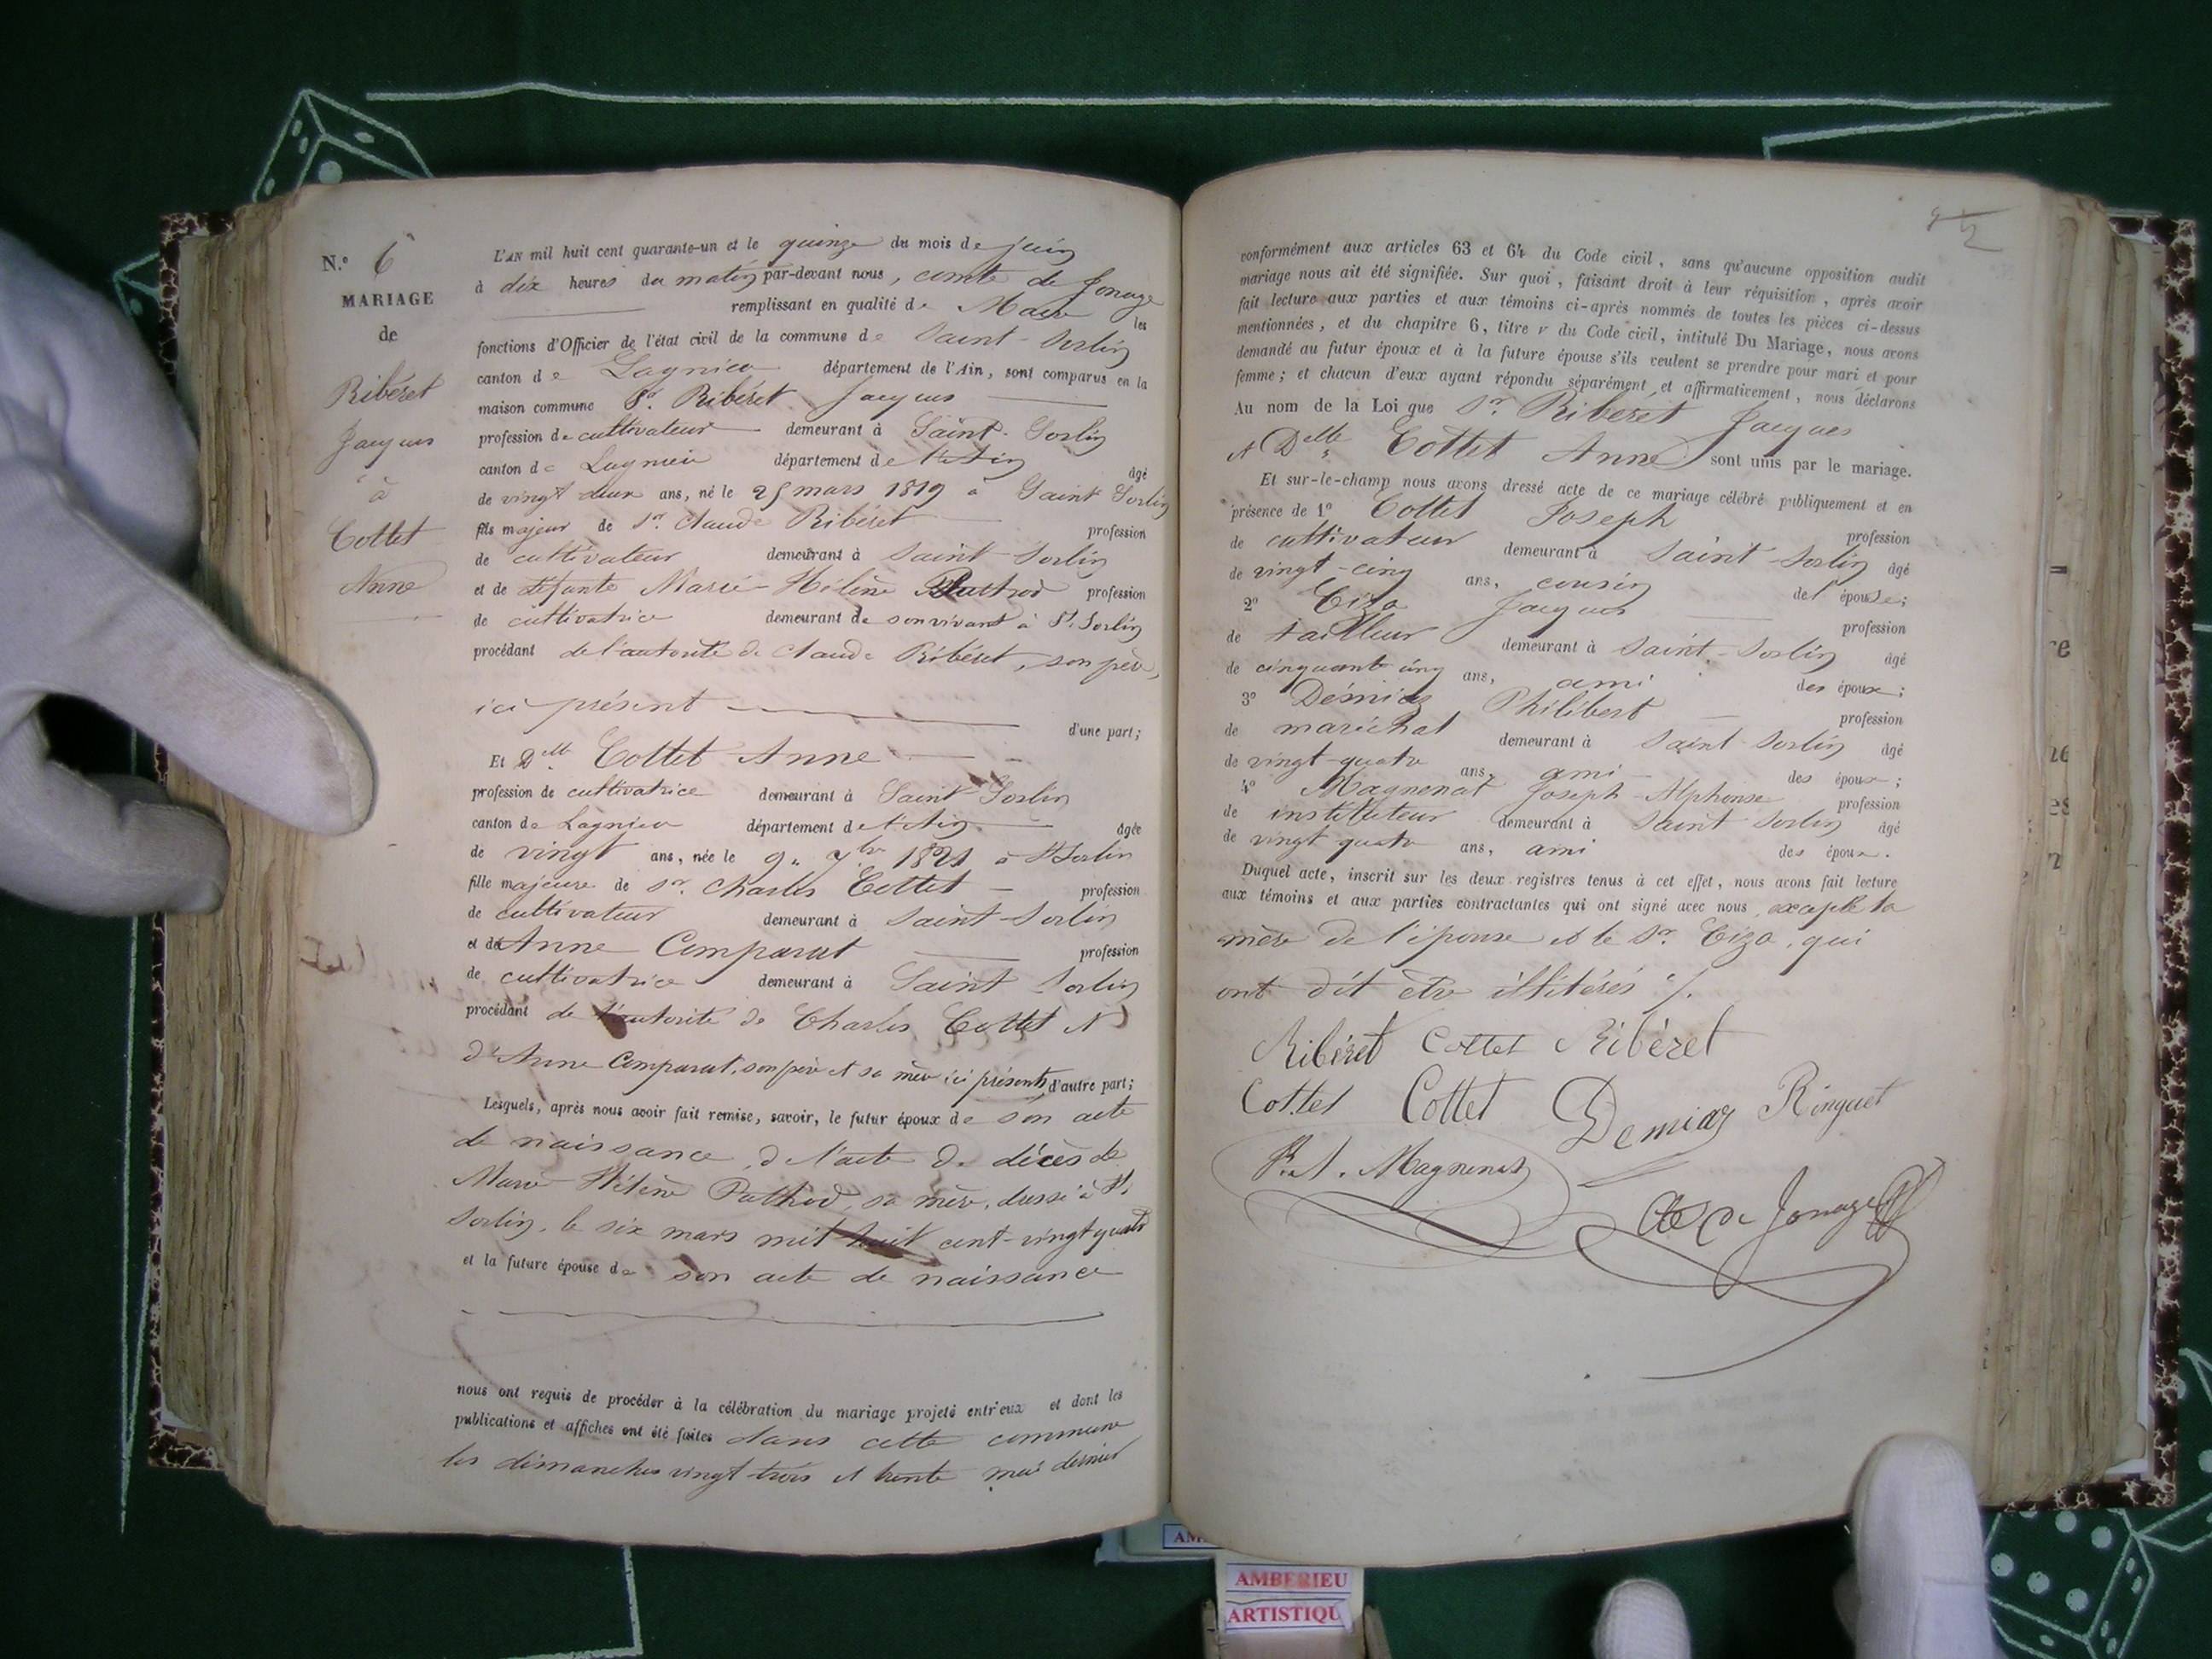 N.° 6
MARIAGE
de
Ribéret
Jacques
à
Cottet
Anne
L'AN mil huit cent quarante-un et le quinze du mois de juin
à dix heures du matin par-devant nous, comte de Jonage
remplissant en qualité de Maire les
fonctions d'Officier de l'état civil de la commune de Saint-Sorlin
canton de Lagnieu département de l'Ain, sont comparus en la
maison commune Sr. Ribéret Jacques
profession de cultivateur demeurant à Saint-Sorlin
canton de Lagnieu département de l'Ain âgé
de vingt deux ans, né le 25 mars 1819 à Saint Sorlin
fils majeur de Sr. Claude Ribéret profession
de cultivateur demeurant à Saint-Sorlin
et de défunte Marie-Hélène Pathod profession
de cultivatrice demeurant de son vivant à St. Sorlin
procédant de l'autorité de Claude Ribéret, son père,
ici présent d'une part;
Et Delle Cottet Anne
profession de cultivatrice demeurant à Saint Sorlin
canton de Lagnieu département de l'Ain âgée
de vingt ans, née le 9. 7bre 1821 à St Sorlin
fille majeure de Sr. Charles Cottet profession
de cultivateur demeurant à Saint-Sorlin
et de Anne Comparat profession
de cultivatrice demeurant à Saint Sorlin
procédant de l'autorité de Charles Cottet et
d'Anne Comparat, son père et sa mère ici présents, d'autre part;
Lesquels, après nous avoir fait remise, savoir, le futur époux de son acte
de naissance, de l'acte de décès de
Marie-Hélène Pathod, sa mère, dressé à St.
Sorlin, le six mars mil huit cent-vingt quatre
et la future épouse de son acte de naissance
nous ont requis de procéder à la célébration du mariage projeté entr'eux et dont les
publications et affiches ont été faites dans cette commune
les dimanches vingt-trois et trente mai dernier
conformément aux articles 63 et 64 du Code civil, sans qu'aucune opposition audit
mariage nous ait été signifiée. Sur quoi, faisant droit à leur réquisition, après avoir
fait lecture aux parties et aux témoins ci-après nommés de toutes les pièces ci-dessus
mentionnées, et du chapitre 6, titre v du Code civil, intitulé Du Mariage, nous avons
demandé au futur époux et à la future épouse s'ils veulent se prendre pour mari et pour
femme; et chacun d'eux ayant répondu séparément et affirmativement, nous déclarons
Au nom de la Loi que Sr. Ribéret Jacques
et Delle Cottet Anne sont unis par le mariage.
Et sur-le-champ nous avons dressé acte de ce mariage célébré publiquement et en
présence de 1° Cottet Joseph profession
de cultivateur demeurant à Saint-Sorlin âgé
de vingt-cinq ans, cousin de l'épouse;
2° Ciza Jacques profession
de tailleur demeurant à Saint-Sorlin âgé
de cinquante cinq ans, ami des époux;
3° Démiaz Philibert profession
de maréchal demeurant à Saint-Sorlin âgé
de vingt-quatre ans, ami des époux;
4° Magnenat Joseph-Alphonse profession
de instituteur demeurant à Saint Sorlin âgé
de vingt quatre ans, ami des époux.
Duquel acte, inscrit sur les deux registres tenus à cet effet, nous avons fait lecture
aux témoins et aux parties contractantes qui ont signé avec nous, excepté la
mère de l'épouse et le Sr. Ciza, qui
ont dit être illitérés ./.
Ribéret Cottet Ribéret
Cottet Cottet Demiaz Ringuet
Magnenat
Cte de Jonage
AMBERIEU
ARTISTIQU